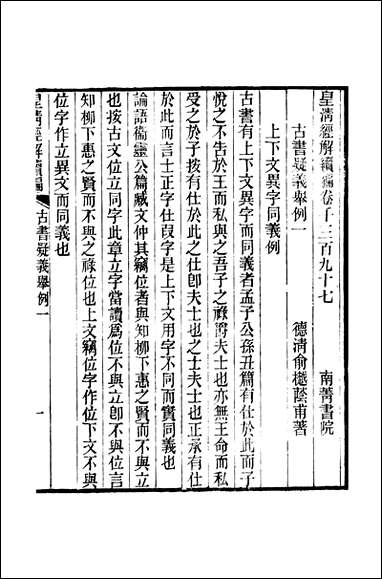 皇淸經解續編卷千三百九十七 南菁書院
古書疑義舉例一 德淸俞樾蔭甫著
上下文異字同義例
古書有上下文異字而同義者孟子公孫丑篇有仕於此而子
悅之不告於王而私與之吾子之祿爵夫士也亦無王命而私
受之於子按有仕於此之仕卽夫士也之士夫士也正承有仕
於此而言士正字仕叚字是上下文用字不同而實同義也
論語衞靈公篇臧文仲其竊位者與知柳下惠之賢而不與立
也按古文位立同字此章立字當讀爲位不與立卽不與位言
知柳下惠之賢而不與之祿位也上文竊位字作位下文不與
位字作立異文而同義也
皇淸經解續編 古書疑義舉例一 一